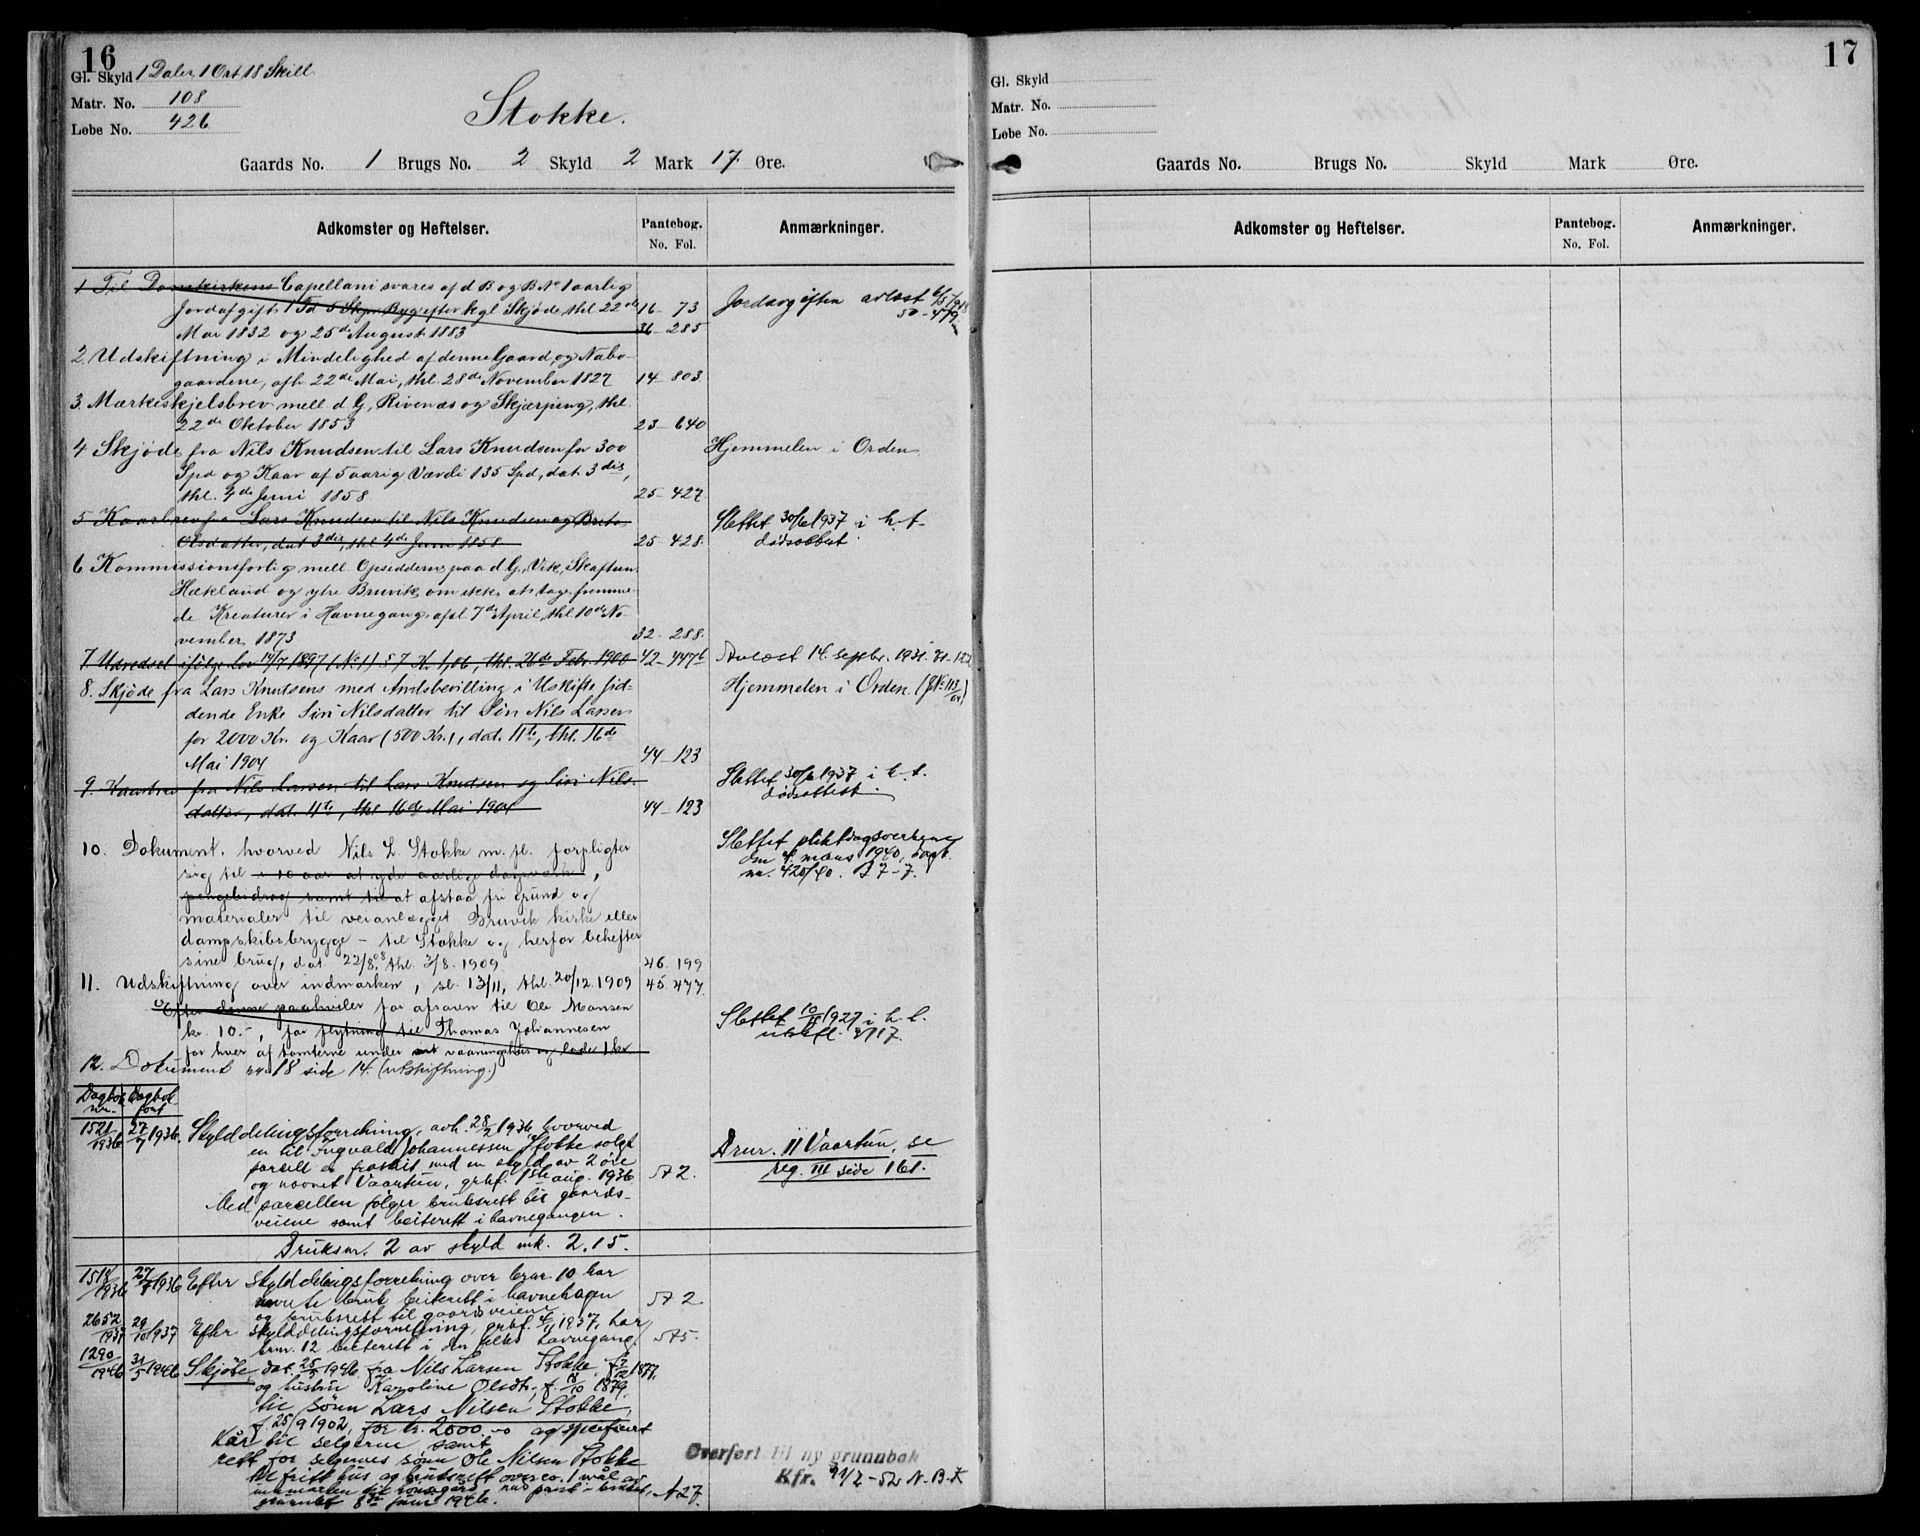 16
Gl. Skyld 1 Daler 1 Ort 18 Skill
Matr. No. 108
Løbe No. 426
Stokke.
Gaards No. 1 Brugs No. 2 Skyld 2 Mark 17 Øre.
Adkomster og Heftelser. Pantebog. No. Fol. Anmærkninger.
1 Til Domkirkens Capellani svares af d B og B No 1 aarlig
Jordafgift 1 Td 5 Skpr Byg efter kgl Skjøde, thl 22de 16 - 73 Jordavgiften avløst
Mai 1832 og 25de August 1883 36 - 285 50 - 479.
2. Udskiftning i Mindelighed af denne Gaard og Nabo-
gaardene, afh. 22de Mai, thl. 28de November 1827 14 - 803
3. Mærkeskjelsbrev mell d G, Rivenæs og Skjærping, thl.
22de Oktober 1853 23 - 640
4 Skjøde fra Nils Knudsen til Lars Knudsen for 300 Hjemmelen i Orden
Spd og Kaar af 5 aarig Værdi 135 Spd, dat. 3die,
thl. 4de Juni 1858 25 - 427
5 Kaarbrev fra Lars Knudsen til Nils Knudsen og Brita Slettet 30/6 1937 i h. t.
Olsdatter, dat 3die, thl 4de Juni 1858 25 - 428. dødsattest.
6 Kommissionsforlig mell. Opsidderne paa d G., Vik, Skaftun
Hækland og ytre Bruvik, om ikke at tage fremme-
de Kreaturer i Havnegang, afsl 7de April, thl 10de No-
vember 1873 32 - 288.
7. Udredsel ifølge Lov 14/7 1897 (No 1) § 7 Kr. 1,06, thl. 26de Febr. 1900 42 - 447b Avløst 14. septbr. 1931.
8. Skjøde fra Lars Knutsens med Amdsbevilling i Uskifte sid- Hjemmelen i Orden. (J No 113/04)
dende Enke Siri Nilsdatter til Søn Nils Larsen
for 2000 Kr. og Kaar (500 Kr.), dat. 11te, thl. 16de
Mai 1904 44 - 123
9. Kaarbrev fra Nils Larsen til Lars Knudsen og Siri Nils- Slettet 30/6 1937 i h. t.
datter, dat. 11te, thl 16de Mai 1904 44 - 123 dødsattest.
10. Dokument, hvorved Nils L. Stokke m. fl. forpligter Slettet pliktdagsverkene
sig til i 10 aar at yde aarlige dagsverk, den 4. mars 1940, dagb.
pengebidrag samt til at afstaa fri grund og nr. 420/40.
materialer til veianlægget Bruvik kirke eller
dampskibsbrygge - til Stokke og herfor behefter
sine brug, dat 22/8 08, thl. 3/8. 1909 46. 199
11. Udskiftning over indmarken, sl. 13/11, thl. 20/12. 1909 45. 477.
Efter denne paahviler for afsaren til Ole Monsen
kr. 10.-, for flytning til Thomas Johannesen Slettet 1927 i h. t.
for hver af tomterne under vaaningshus og lade 1 kr
12. Dokument nr. 18 side 14. (utskiftning.)
Dagbok nr. Dagbok ført
1521/1936 27/7 1936 Skylddelingsforretning, avh. 28/2 1936 hvorved
en til Ingvald Johannessen Stokke solgt
parsell er fraskilt med en skyld av 2 øre Brur. 11 Vaartun, se
og navnet Vaartun, grbf. 1ste aug. 1936. A 2. reg. III side 161.
Med parcellen følger bruksrett til gaards-
veiene samt beiterett i havnegangen.
Bruksnr. 2 av skyld mk. 2.15.
1518/1936 27/7 1936 Efter skylddelingsforretning over brnr. 10 har
dette bruk beiterett i havnehagen A 2
og bruksrett til gaardsveiene
2652/1937 29/10 1937 Efter skylddelingsforretning, grbf. 1937, har
brnr. 12 beiterett i den felles havnegang. A 5.
1290/1946 31/5 1946 Skjøte, dat. 25/5 1946 fra Nils Larsen Stokke, f. 1877
og hustru Karoline Olsdt., f. 18/10 1879,
til sønn Lars Nilsen Stokke,
f. 25/9 1902, for kr. 2000.- og spesifisert
Kår til selgerne samt
rett for selgernes sønn Ole Nilsen Stokke
til fritt hus og bruksrett over ca. 1 mål av
A 27.
Overført til ny grunnbok
Kfr. 21/2 - 52 N.B.K
17
Gl. Skyld
Matr. No.
Løbe No.
Gaards No. Brugs No. Skyld Mark Øre.
Adkomster og Heftelser. Pantebog. No. Fol. Anmærkninger.